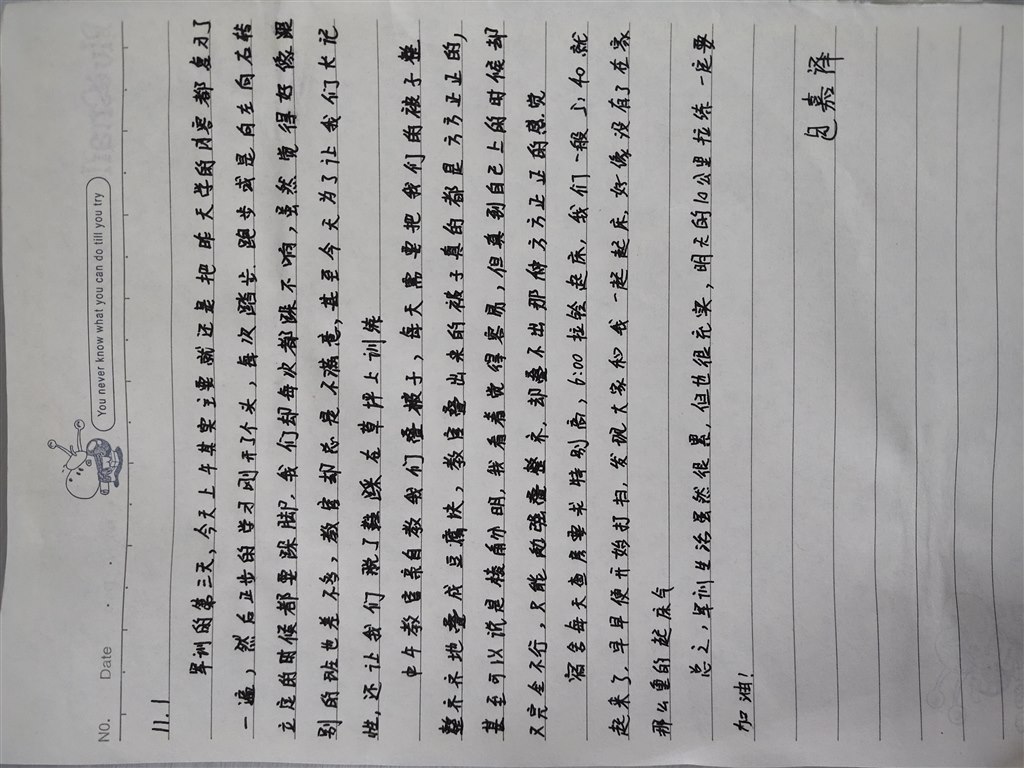 You never know what you can do till you try
No.
Date
11.1
军训的第三天,今天上午其实主要就还是把昨天学的内容都复习了
一遍,然后正步的学习刚开了个头,每次踏步.跑步或是向左向右转
立定的时候都要跺脚,我们却每次都跺不响,虽然觉得好像跟
别的班也差不多,教官却总是不满意,甚至今天为了让我们长记
性,还让我们脱了鞋踩在草坪上训练
中午教官亲自教我们叠被子,每天需要把我们的被子整
整齐齐地叠成豆腐块,教官叠出来的被子真的都是方方正正的,
甚至可以说是棱角分明,我看着觉得容易,但真到自己上的时候却
又完全不行,只能勉强叠整齐,却叠不出那种方方正正的感觉
宿舍每天查房要求特别高,6:00拉铃起床,我们一般5:40就
起来了,早早便开始打扫,发现大家和我一起起床,好像没有了在家
那么重的起床气
总之,军训生活虽然很累,但也很充实,明天的10公里拉练一定要
加油!
包嘉泽